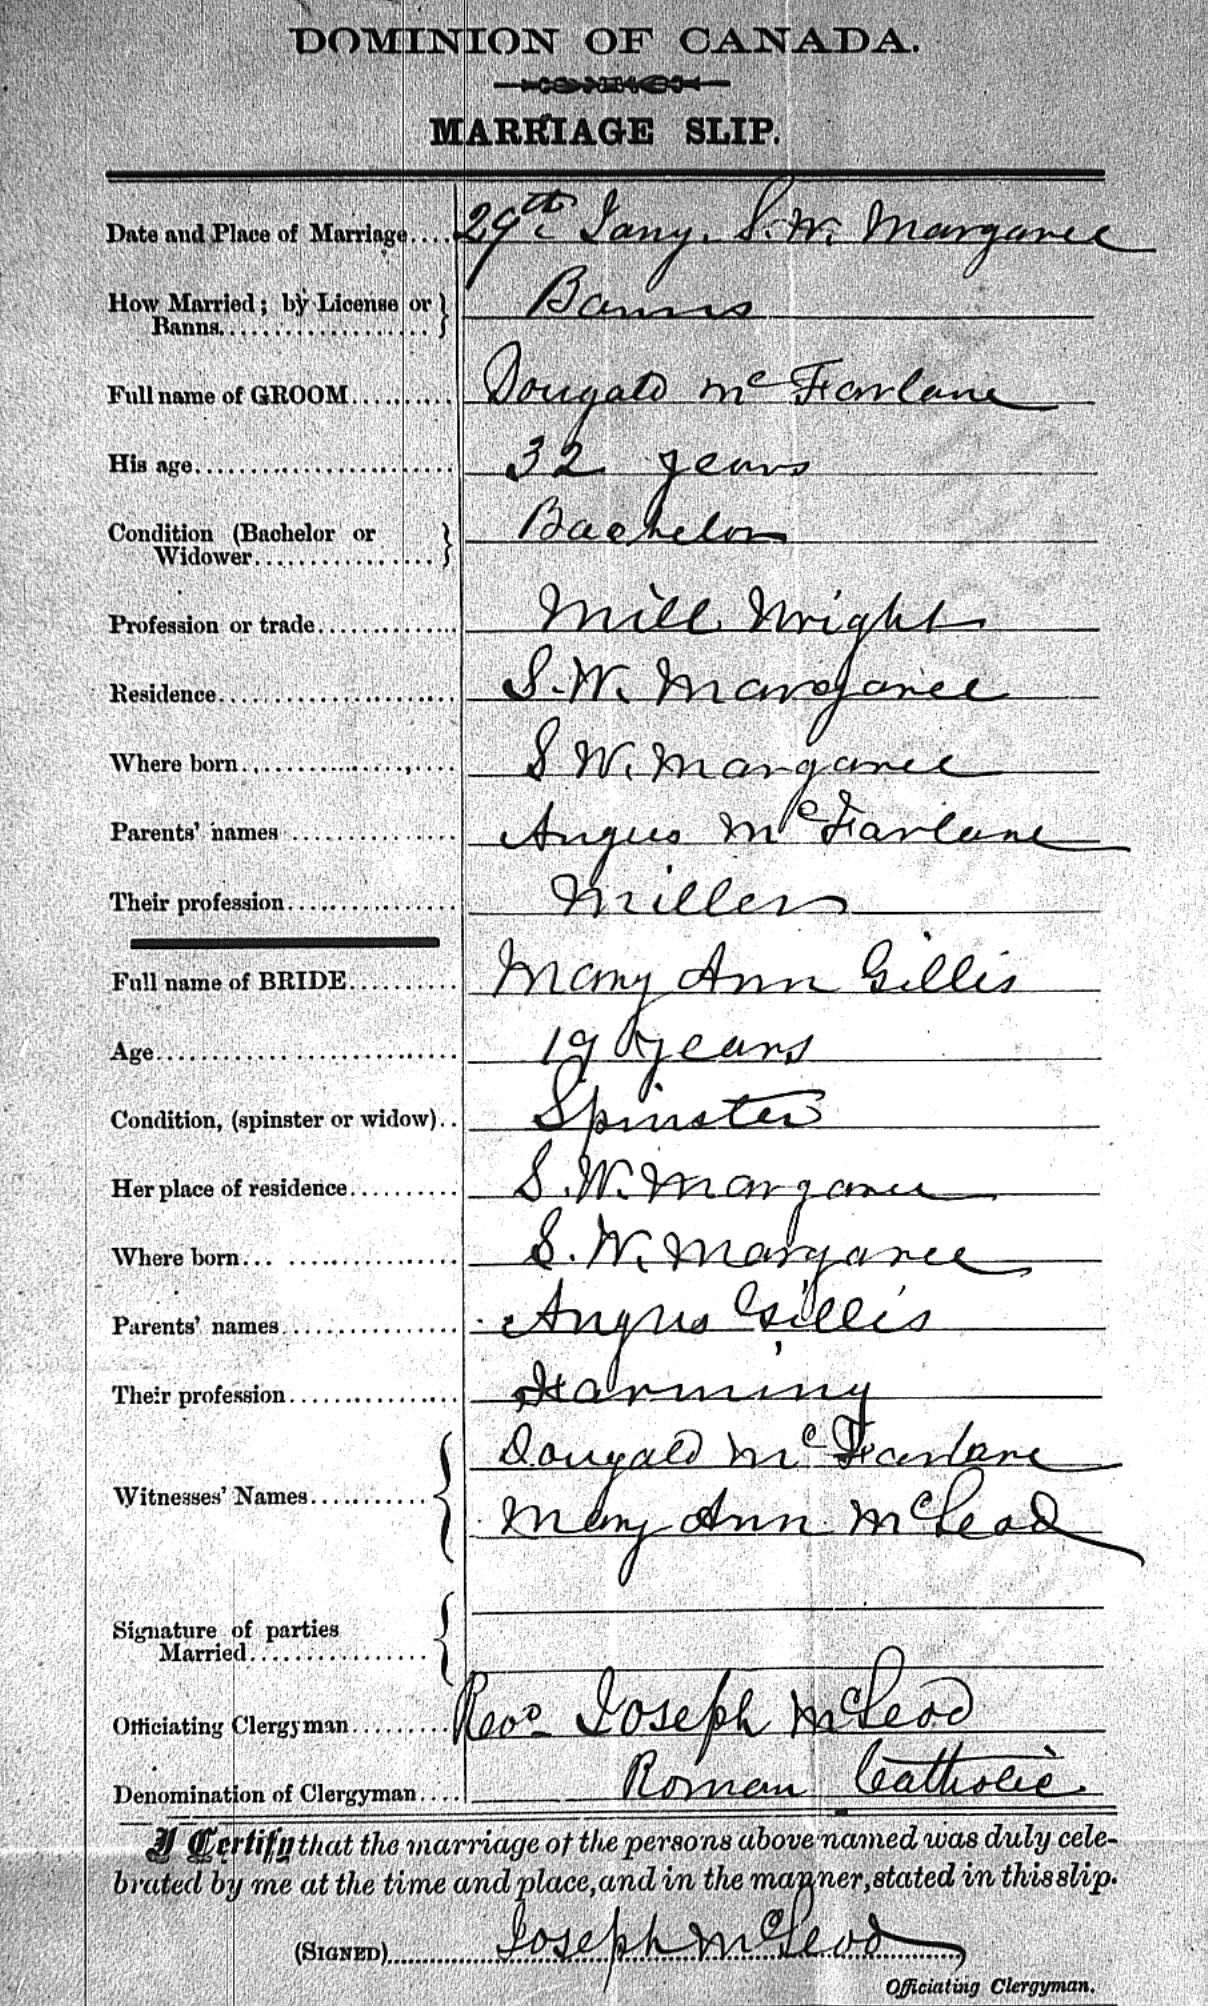 DOMINION OF CANADA.
MARRIAGE SLIP.
Date and Place of Marriage.... 29th Jany. S. W. Margaree
How Married; by License or } Banns
Banns....................
Full name of GROOM.......... Dougald McFarlane
His age.......................... 32 years
Condition (Bachelor or } Bachelor
Widower..................
Profession or trade.............. Mill Wright
Residence........................ S. W. Margaree
Where born...................... S W. Margaree
Parents' names ................. Angus McFarlane
Their profession................. Miller
Full name of BRIDE........... Mary Ann Gillis
Age............................... 19 years
Condition, (spinster or widow).. Spinster
Her place of residence........... S. W. Margaree
Where born... .................. S. W. Margaree
Parents' names................. Angus Gillis
Their profession................. Farming
Dougald McFarlane
Witnesses' Names............ {
Mary Ann McLeod
Signature of parties {
Married.................
Officiating Clergyman.......... Revd Joseph McLeod
Denomination of Clergyman.... Roman Catholic
I Certify that the marriage of the persons above named was duly cele-
brated by me at the time and place, and in the manner, stated in this slip.
(SIGNED) Joseph McLeod
Officiating Clergyman.